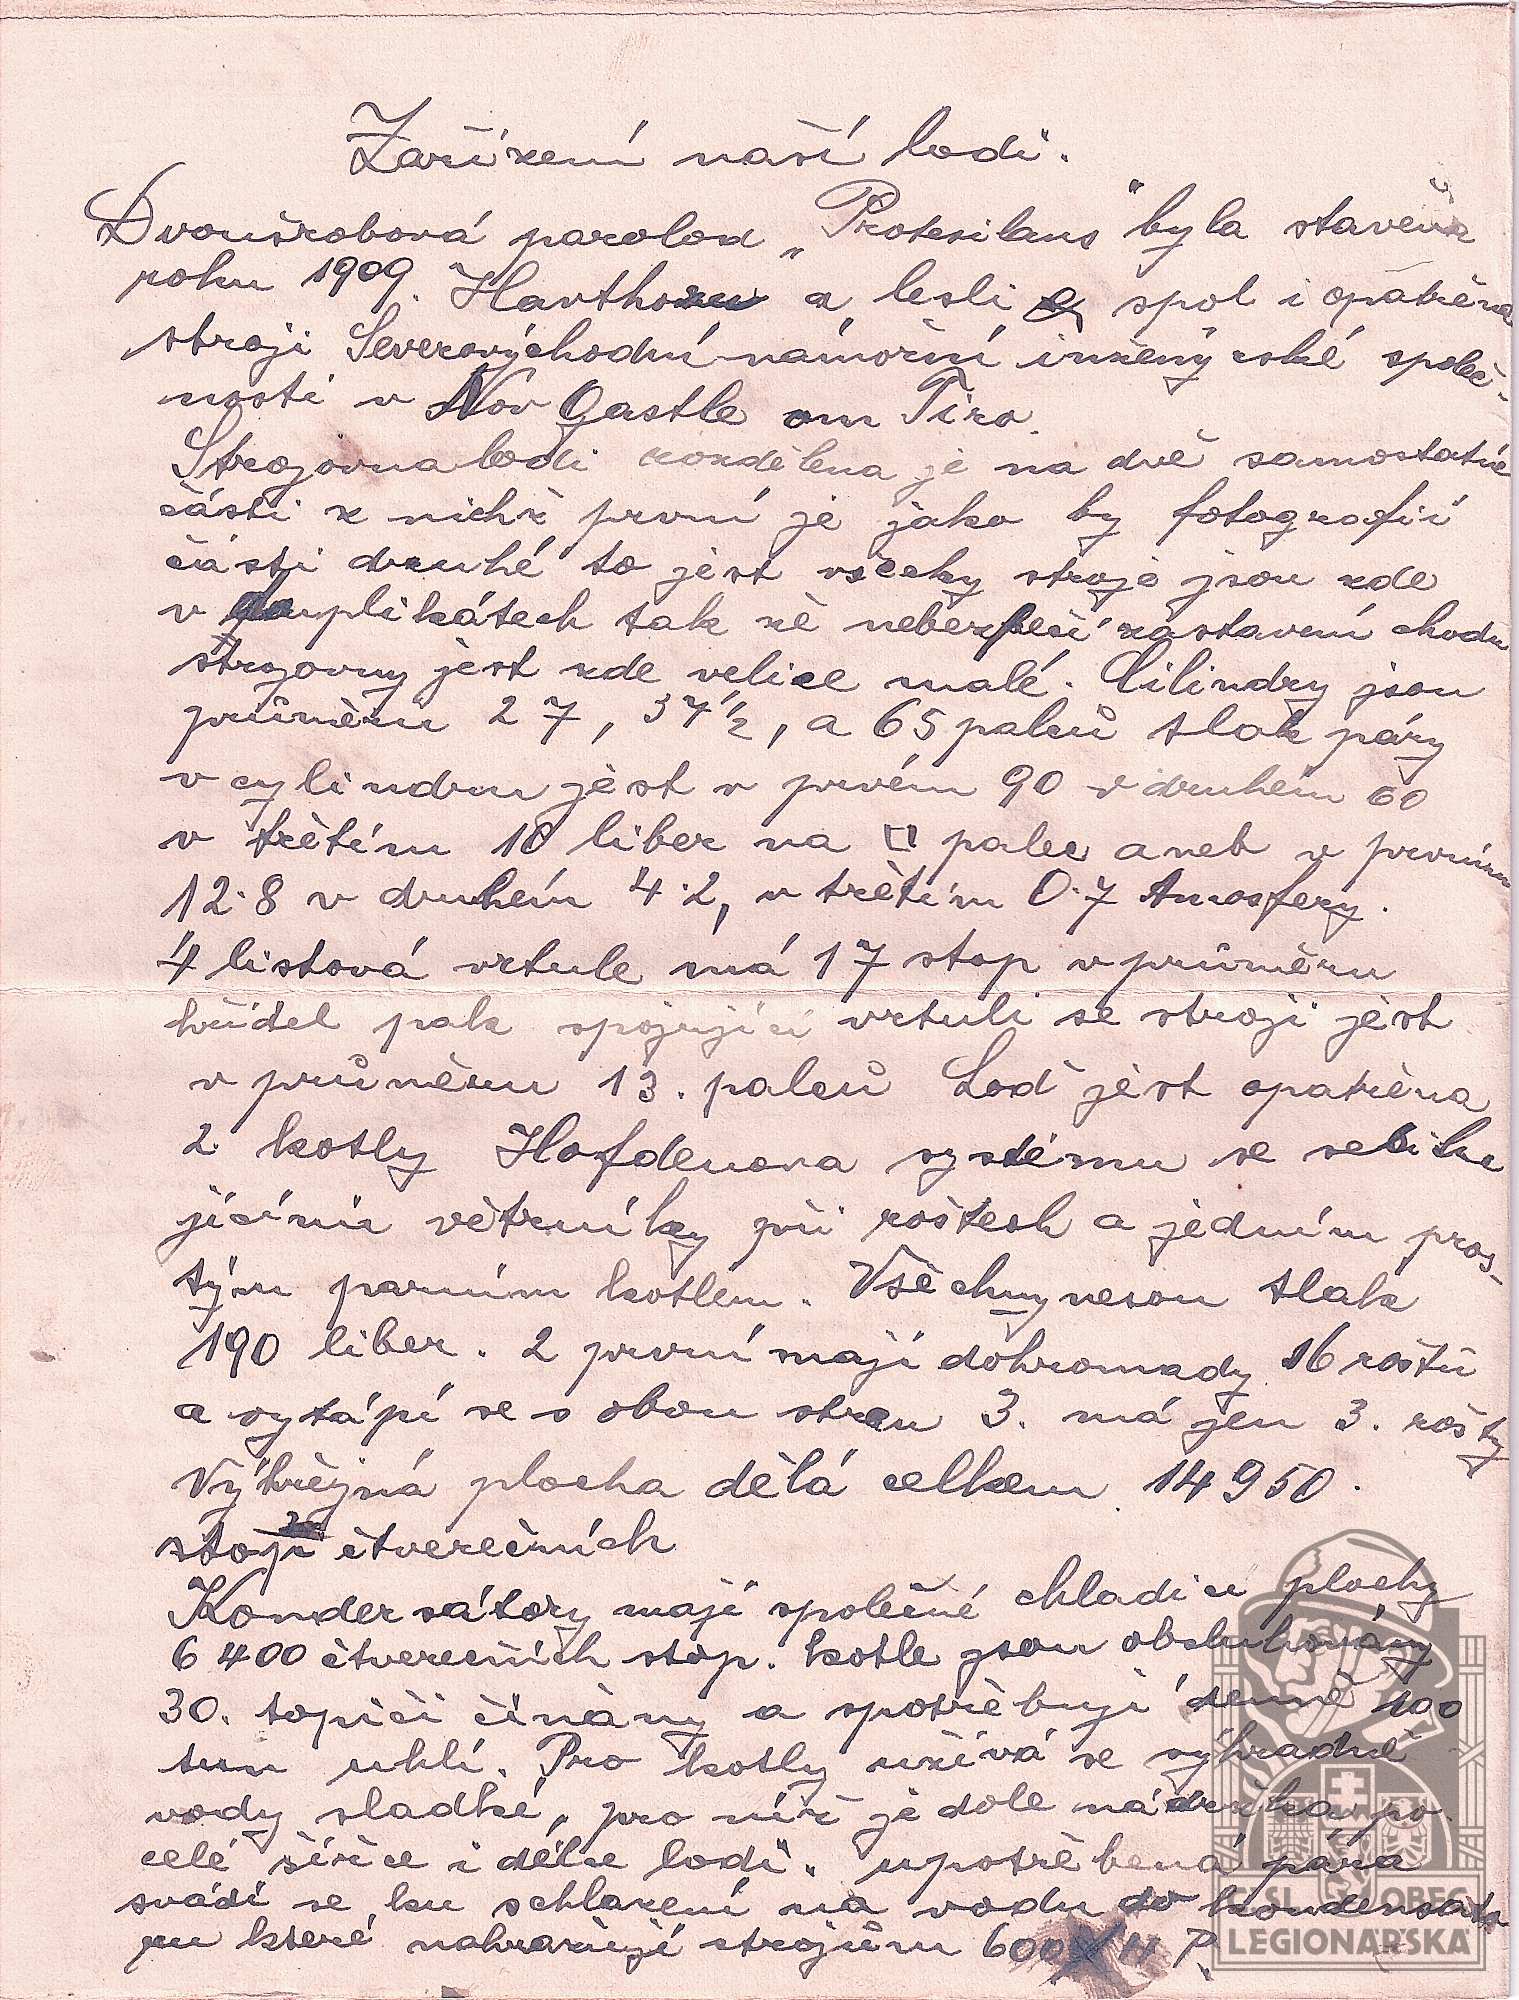 Zařízení naší lodi.
Dvoušrobová paroloď „Protesilaus" byla stavěna
roku 1909. Havthorn a lesli spol i opatřena
stroji Severovýchodní námořní inženýrské společ-
nosti v Nov Gastle on Tiro.
Strojovna lodi rozdělena je na dvě samostatné
části z nichž první je jako by fotografií
části druhé to jest všecky stroje jsou zde
v duplikátech tak že neberpečí zastavení chodu
strojovny jest zde velice malé. Cilindry jsou
průměru 27, 37½, a 65 palců tlak páry
v cylindru jest v prvém 90 v druhém 60
v třetím 10 liber na □ palec aneb v prvním
12·8 v druhém 4·2, v třetím 0·7 Amosfery.
4 listová vrtule má 17 stop v průměru
hřídel pak spojující vrtuli se stroji jest
v průměru 13. palců Loď jest opatřena
2 kotly Hofdenova systému se sebihu
jícími větrníky při roštech a jedním pros-
tým parním kotlem. Všechny nesou tlak
190 liber. 2 první mají dohromady 16 roštů
a vytápí se s obou stran 3. má jen 3. rošty
Výhřejná plocha dělá celkem 14950.
stop čtverečních
Kondersátory mají společné chladící plochy
6400 čtverečních stop. kotle jsou obsluhovány
30. topiči čínàny a spotřebují denně 100
tun uhlí. Pro kotly užívá se výhradně
vody sladké, pro níž je dole nádržka po
celé šířce i délce lodi. upotřebená pára
svádí se ku schlazení na vodu do kondensáto
ru které nahrazují strojům 600 H P.
ČSL. OBEC
LEGIONÁŘSKÁ